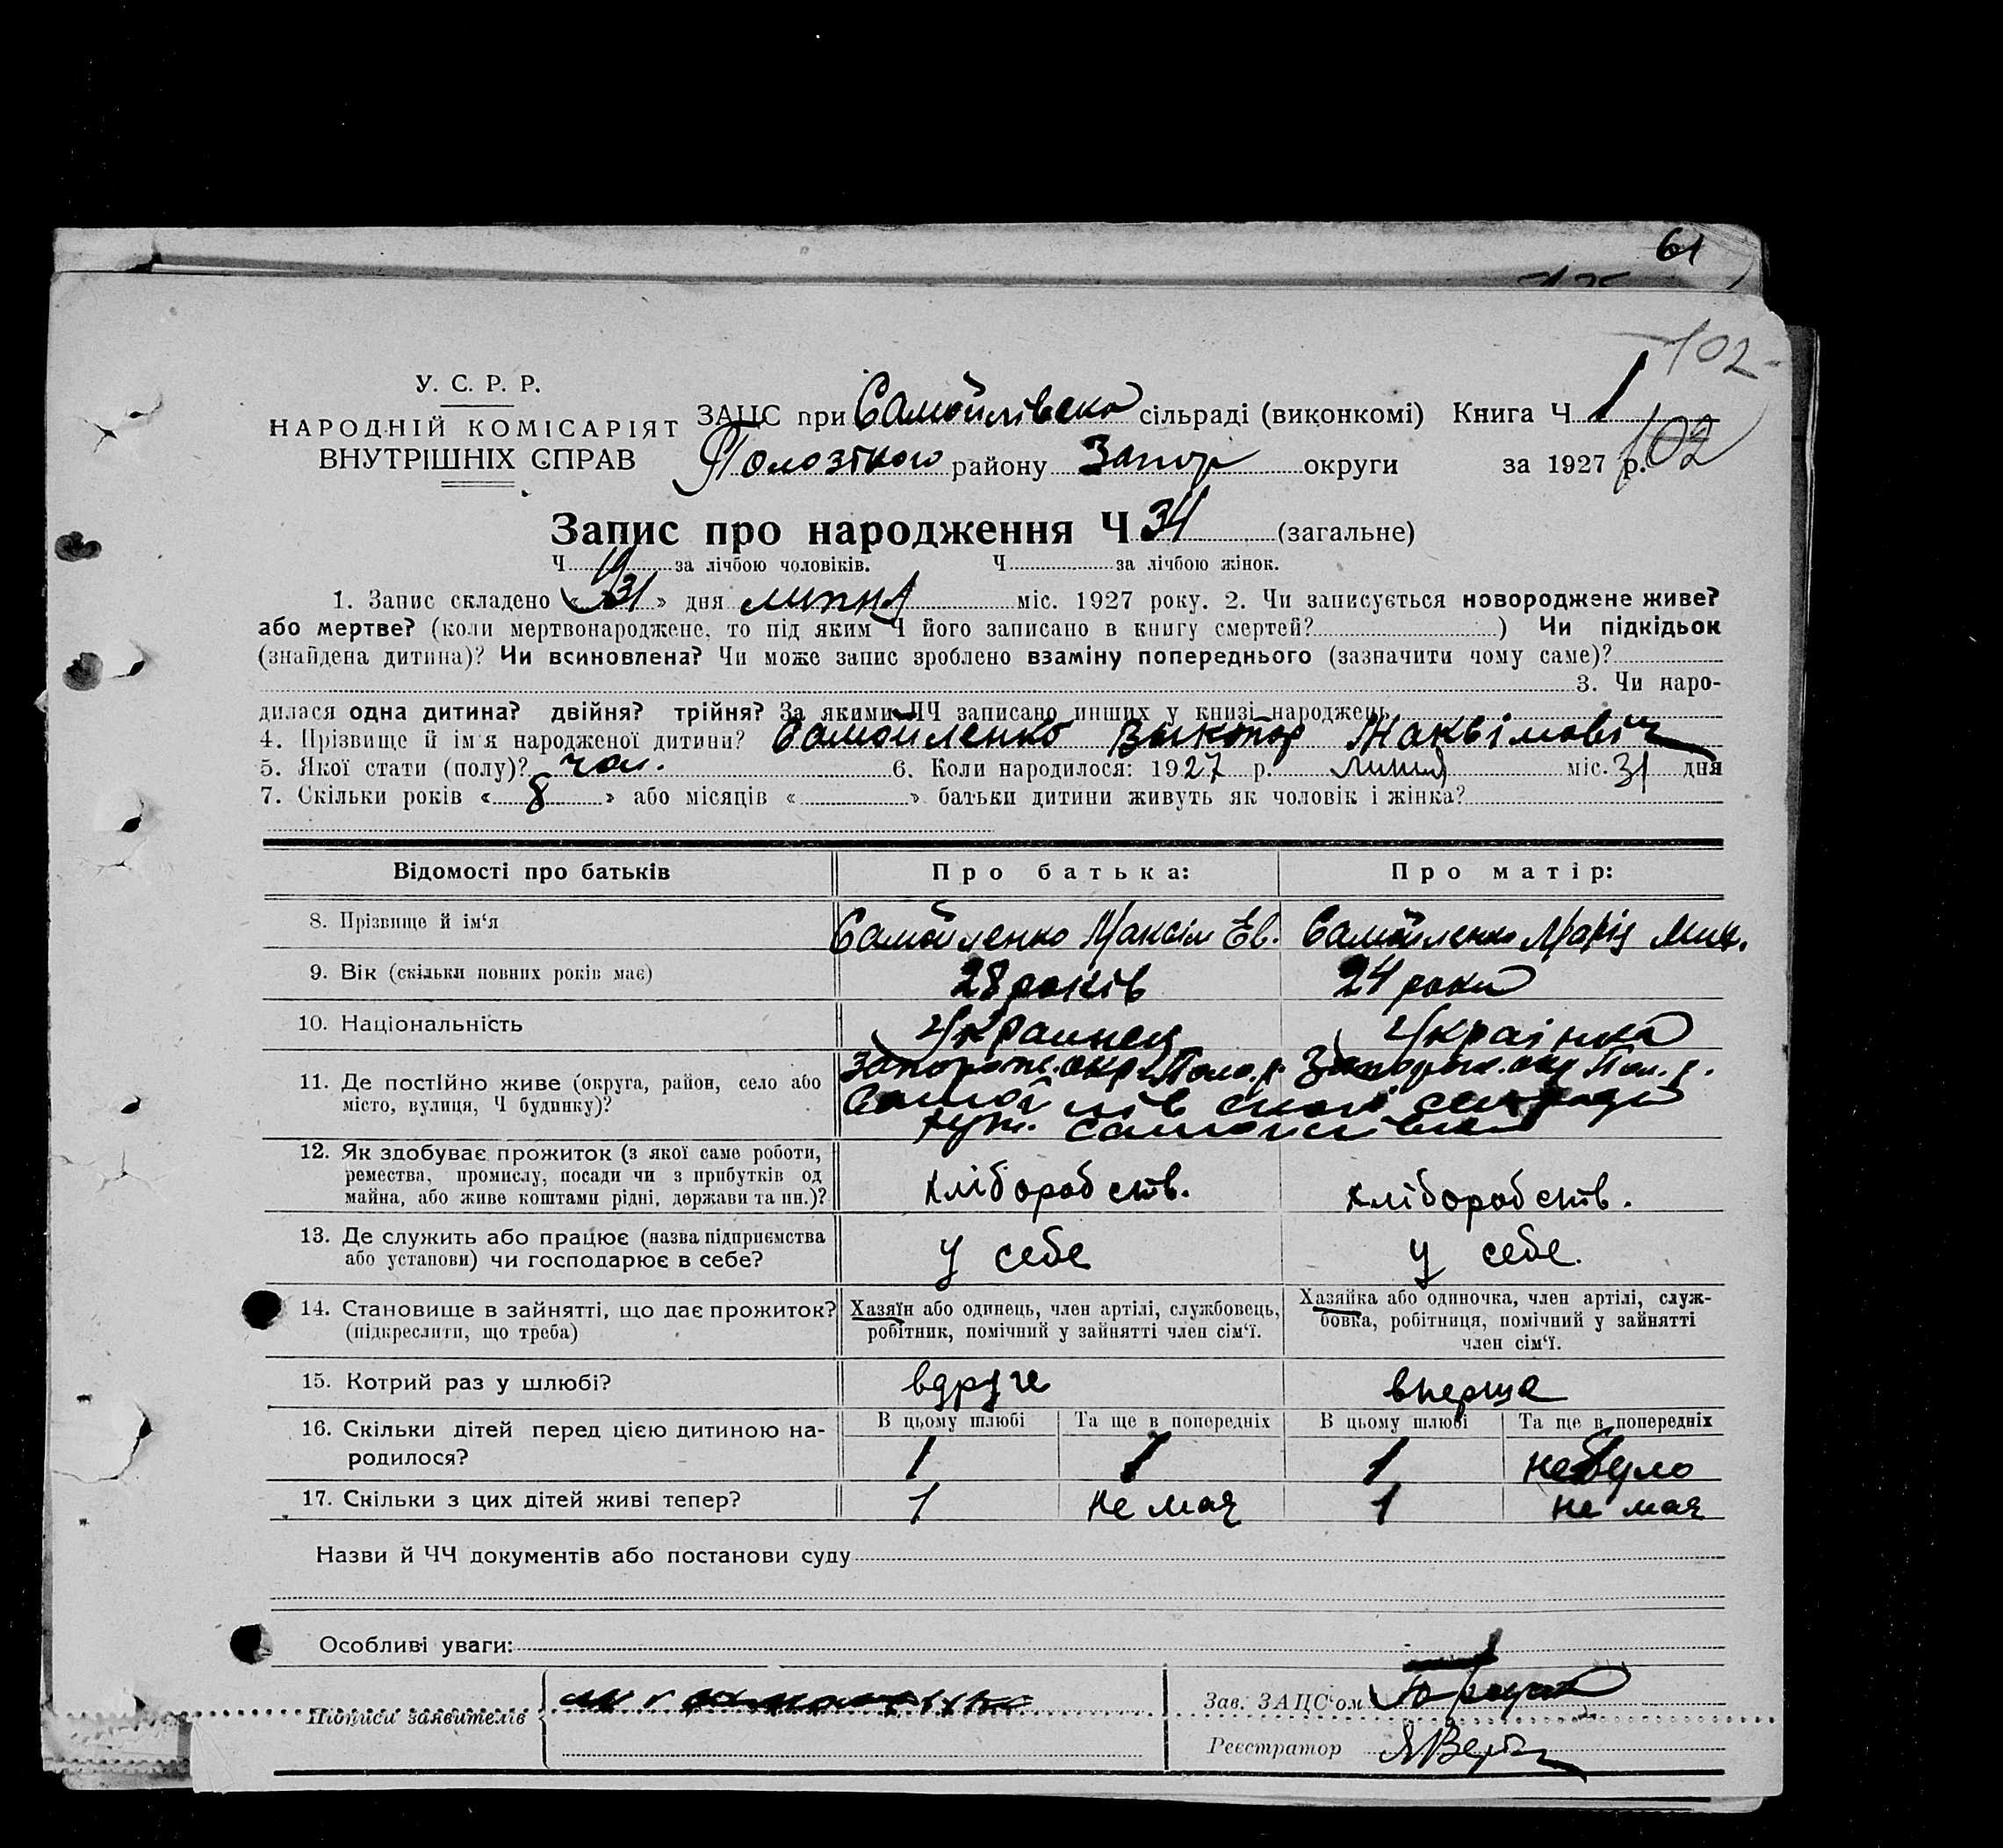 61
102
У. С. Р. Р.
НАРОДНІЙ КОМІСАРІЯТ
ВНУТРІШНІХ СПРАВ
ЗАЦС при Самойлівско сільраді (виконкомі) Книга Ч 1
Полозткого району Запор округи за 1927 р. 102
Запис про народження Ч 34 (загальне)
Ч 19 за лічбою чоловіків. Ч за лічбою жінок.
1. Запис складено « 31 » дня липня міс. 1927 року. 2. Чи записується новороджене живе?
або мертве? (коли мертвонароджене, то під яким Ч його записано в книгу смертей? ) Чи підкідьок
(знайдена дитина)? Чи всиновлена? Чи може запис зроблено взаміну попереднього (зазначити чому саме)?
3. Чи наро-
дилася одна дитина? двійня? трійня? За якими ЧЧ записано инших у книзі народжень
4. Прізвище й ім'я народженої дитини? Самойленко Виктор Максімовіч
5. Якої стати (полу)? чол. 6. Коли народилося: 1927 р. липня міс. 31 дня
7. Скільки років « 8 » або місяців « » батьки дитини живуть як чоловік і жінка?
Відомості про батьків Про батька: Про матір:
8. Прізвище й ім'я Самойленко Максім Ев. Самойленко Марія Мих.
9. Вік (скільки повних років має) 28 років 24 роки
10. Національність Украинец Українка
11. Де постійно живе (округа, район, село або Запорож. окр. Поло. р. Запорож. окр Пол. р.
місто, вулиця, Ч будинку)? Самойлівської сельради
хут. Самойлівка
12. Як здобуває прожиток (з якої саме роботи,
ремества, промислу, посади чи з прибутків од
майна, або живе коштами рідні, держави та ин.)? хліборобств. хліборобств.
13. Де служить або працює (назва підприємства
або установи) чи господарює в себе? у себе у себе.
14. Становище в зайнятті, що дає прожиток? Хазяїн або одинець, член артілі, службовець, Хазяйка або одиночка, член артілі, служ-
(підкреслити, що треба) робітник, помічний у зайнятті член сім'ї. бовка, робітниця, помічний у зайнятті
член сім'ї.
15. Котрий раз у шлюбі? вдруге вперше
16. Скільки дітей перед цією дитиною на- В цьому шлюбі Та ще в попередніх В цьому шлюбі Та ще в попередніх
родилося? 1 1 1 небуло
17. Скільки з цих дітей живі тепер? 1 не має 1 не має
Назви й ЧЧ документів або постанови суду
Особливі уваги:
Підписи заявителів
Зав. ЗАЦС'ом
Реєстратор